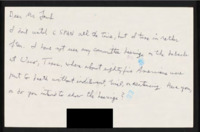 Dear Mr. Lamb:
I don't watch C SPAN all the time, but I do so rather
often. I have not seen any committee hearings on the debacle
at Waco, Texas, when about eighty-five Americans were
put to death without indictment, trial, or sentencing. Have you,
or do you intend to show the hearings?